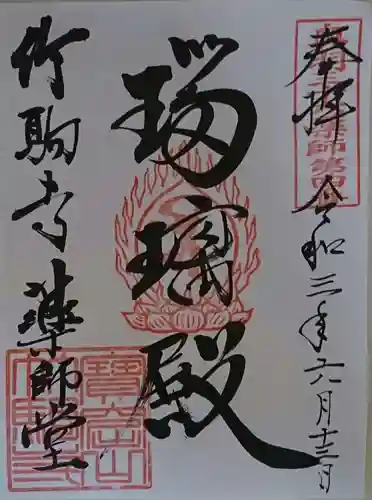 奉拝 令和三年六月十三日
瑠璃殿
竹駒寺薬師堂